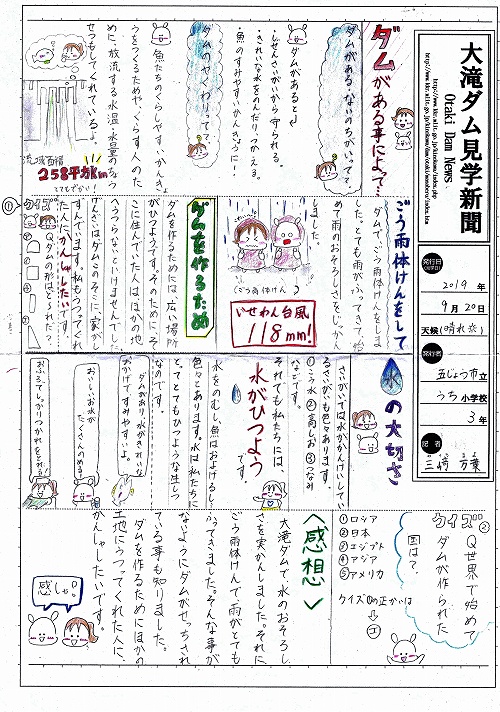 大滝ダム見学新聞
Otaki Dam News
発行日
2019年
9月20日
天候(晴れ)
発行者
五じょう市立
うち小学校
3年
記者
ダムがある事によって…
ダムがある、ないのちがいって?
ダムがあると↓
・しぜんさいがいから守られる。
・きれいな水をのんだり、つかえる。
・魚のすみやすいかんきょうに!
ダムのやくわりって?
魚たちのくらしやすい、かんき
ょうをつくるためや、くらす人のた
めに、放流する水温・水量のちょう
せつもしてくれているよ。
流いき面積
258平方km
とてもでかい!
ごう雨体けんをして
ダムで、ごう雨体けんをしま
した。とても雨がふってきて、始
めて雨のおそろしさを、じっかん
しました。
(ごう雨体けん)
いせわん台風
118mm!
ダムを作るため
ダムを作るためには、広い場所
がひつようです。そのために、そ
こに住んでいた人は、ほかの地
へうつらないといけませんでした。
げんざいはダムのそこに、家がし
ずんでいます。私もうつってくれ
た人に、かんしゃしたいです。
①クイズ
Qダムの形はどれだ?
水の大切さ
さいがいでは水がかんけいしてい
るさいがいも色々あります。
①こう水②高しお③つなみ
などです。
それでも私たちには、
水がひつよう
です。
水をのむ、魚はおよげるし…
色々とあります。水は私たちに
とってとてもひつような生しつ
なのです。
ダムがあり、水がきれいな
おかげですみやすいよ。
おいしいお水が
たくさんのめる
おふろでしっかりつかれをとれる!
クイズ②
Q世界で始めて
ダムが作られた
国は?
①ロシア
②日本
③エジプト
④アジア
⑤アメリカ
クイズ①の正かいは
→
<感想>
大滝ダムで、水のおそろし
さを実かんしました。それに、
ごう雨体けんで、雨がとても
ふってきました。そんな事が
ないようにダムがせっちされ
ている事も知りました。
ダムを作るためにほかの
土地にうつってくれた人に、
かんしゃしたいです。
感しゃ。